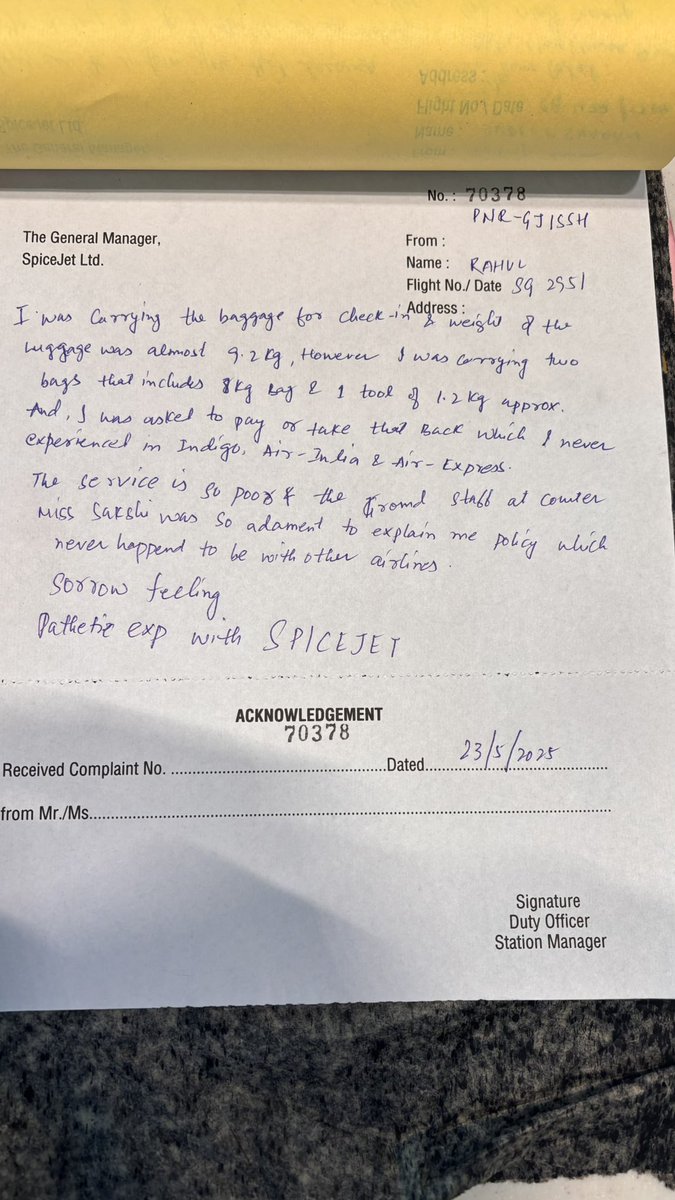 Address :
Flight No./ Date
Name :
From :
SpiceJet Ltd.
The General Manager,
No. : 70378
PNR-GJISSH
The General Manager,
SpiceJet Ltd.
From :
Name : RAHUL
Flight No./ Date SG 2951
Address :
I was carrying the baggage for check-in & weight of the
luggage was almost 9.2 kg, However I was carrying two
bags that includes 8kg bag & 1 tool of 1.2 kg approx.
And, I was asked to pay or take that back which I never
experienced in Indigo, Air-India & Air-Express.
The service is so poor & the Ground staff at counter
Miss Sakshi was so adament to explain me policy which
never happend to be with other airlines.
Sorrow feeling
Pathetic exp with SPICEJET
ACKNOWLEDGEMENT
70378
Received Complaint No. ..................................................Dated..... 23/5/2025
from Mr./Ms..................................................
Signature
Duty Officer
Station Manager